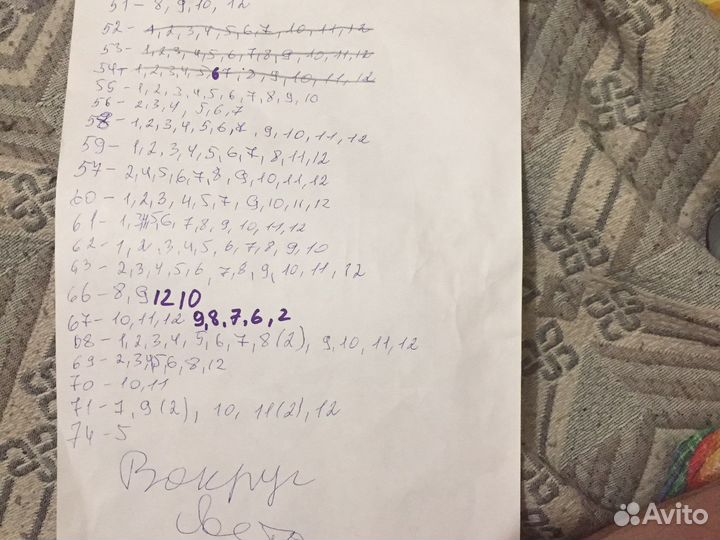 51 - 8, 9, 10, 12
52 - 1, 2, 3, 4, 5, 6, 7, 10, 11, 12
53 - 1, 2, 3, 4, 5, 6, 7, 8, 9, 10, 11, 12
54 - 1, 2, 3, 4, 5 6 7, 8, 9, 10, 11, 12
55 - 1, 2, 3, 4, 5, 6, 7, 8, 9, 10
56 - 2, 3, 4, 5, 6, 7
58 - 1, 2, 3, 4, 5, 6, 7, 9, 10, 11, 12
59 - 1, 2, 3, 4, 5, 6, 7, 8, 11, 12
57 - 2, 4, 5, 6, 7, 8, 9, 10, 11, 12
60 - 1, 2, 3, 4, 5, 7, 9, 10, 11, 12
61 - 1, 3, 4, 5, 6, 7, 8, 9, 10, 11, 12
62 - 1, 2, 3, 4, 5, 6, 7, 8, 9, 10
63 - 2, 3, 4, 5, 6, 7, 8, 9, 10, 11, 12
66 - 8, 9 12 10
67 - 10, 11, 12 9, 8, 7, 6, 2
68 - 1, 2, 3, 4, 5, 6, 7, 8 (2), 9, 10, 11, 12
69 - 2, 3, 4, 5, 6, 8, 12
70 - 10, 11
71 - 7, 9 (2), 10, 11 (2), 12
74 - 5
Вокруг
Avito